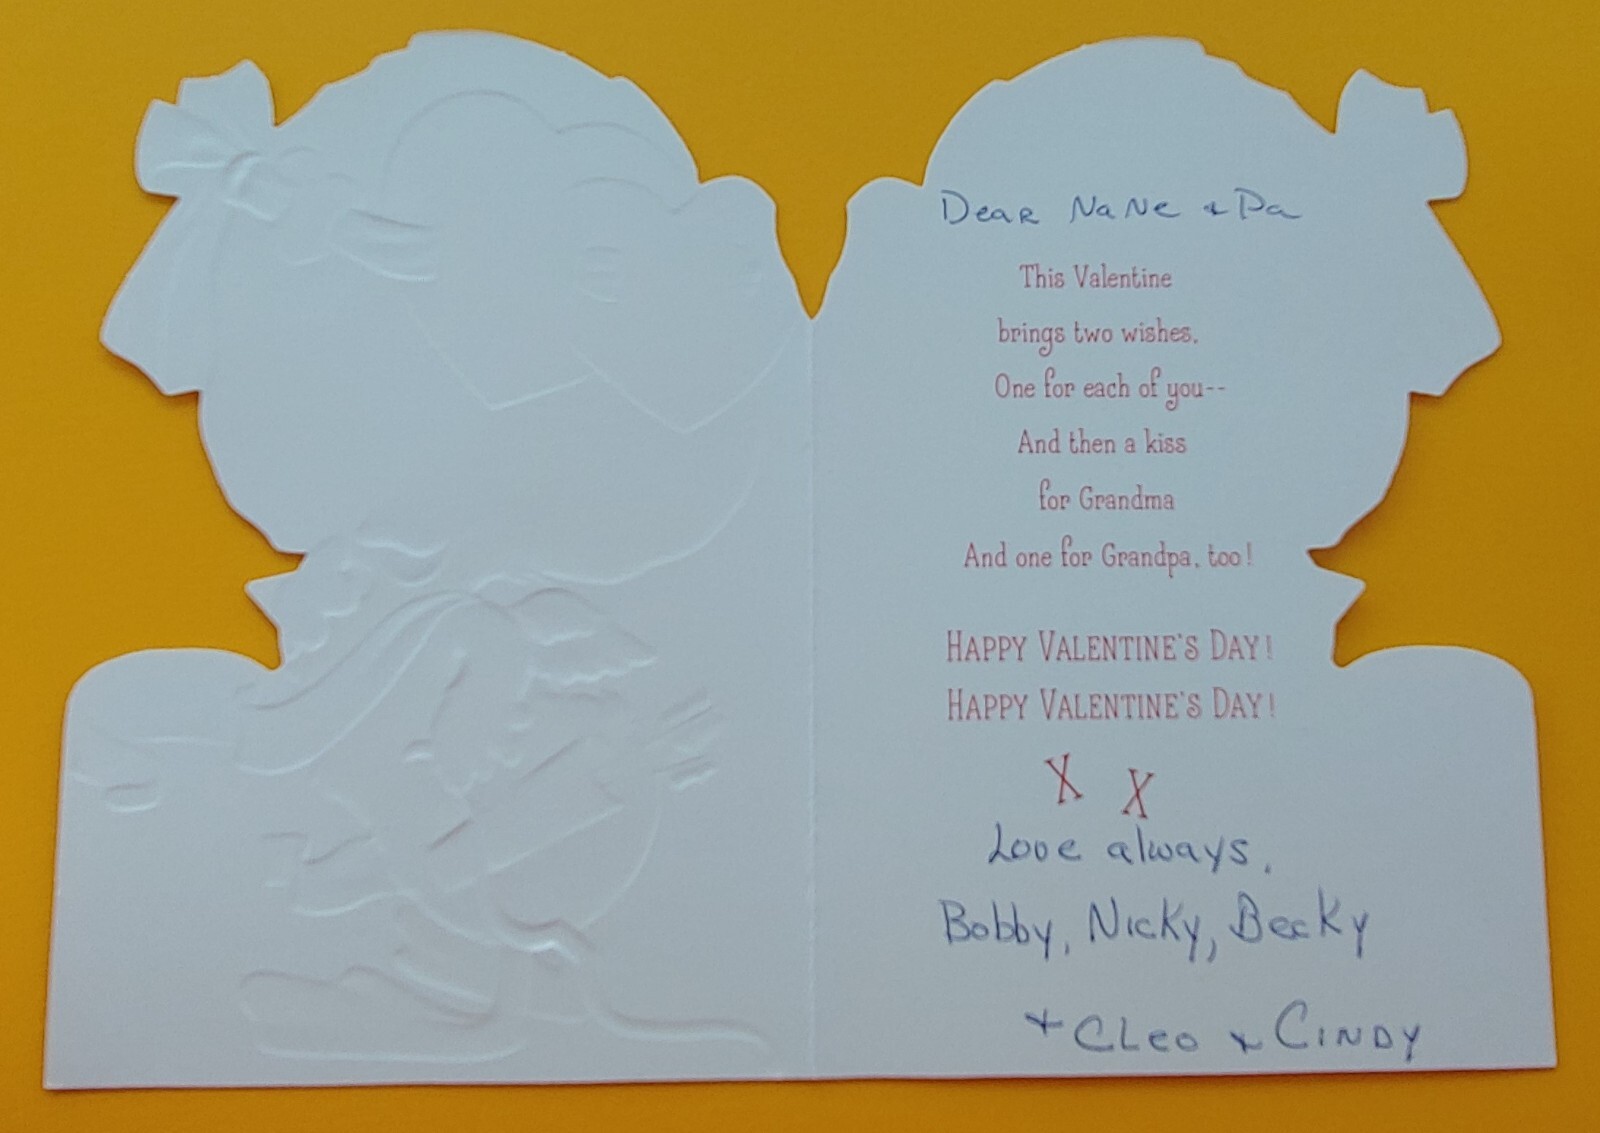 Dear NaNe & Pa
This Valentine
brings two wishes,
One for each of you--
And then a kiss
for Grandma
And one for Grandpa, too!
HAPPY VALENTINE'S DAY!
HAPPY VALENTINE'S DAY!
X X
Love always,
Bobby, Nicky, Becky
+ Cleo & Cindy